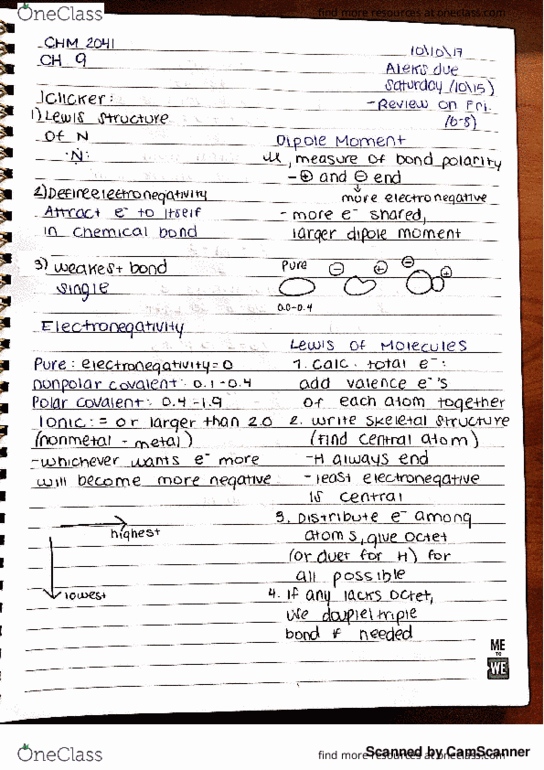 OneClass
find more resources at oneclass.com
CHM 2041
CH 9
10/10/17
Aleks due
Saturday (10/15)
- Review on Fri.
(6-8)
Iclicker:
1) Lewis structure
of N
·N:
2) Define electronegativity
Attract e⁻ to itself
in chemical bond
3) weakest bond
single
Dipole Moment
μ, measure of bond polarity
- ⊕ and ⊖ end
more electronegative
- more e⁻ shared,
larger dipole moment
Pure
⊖ ⊕ ⊖ ⊕
0.0-0.4
Electronegativity
Pure: electronegativity = 0
nonpolar covalent: 0.1-0.4
Polar covalent: 0.4-1.9
Ionic: = or larger than 2.0
(nonmetal - metal)
- whichever wants e⁻ more
will become more negative
highest
lowest
Lewis of Molecules
1. Calc. total e⁻:
add valence e⁻'s
of each atom together
2. write skeletal structure
(find central atom)
- H always end
- least electronegative
is central
3. Distribute e⁻ among
atoms, give octet
(or duet for H) for
all possible
4. If any lacks octet,
use double/triple
bond if needed
ME
TO
WE
OneClass
find more resources at oneclass.com
Scanned by CamScanner